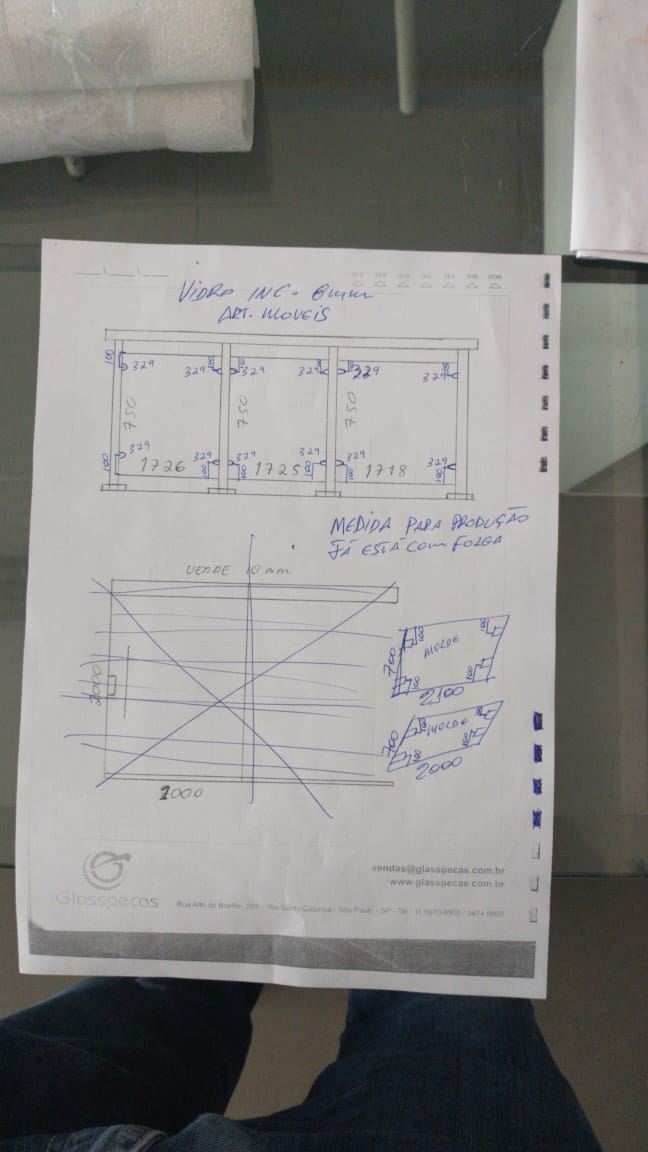 SEG TER QUA QUI SEX SAB DOM
VIDRO INC. 8mm
ART. MOVEIS
100 329 329 100 329 329 100 329 329 100
750 750 750
100 329 329 329 329 329 329
1726 100 1725 100 100 1718 100
MEDIDA PARA PRODUÇÃO
JÁ ESTÁ COM FOLGA
VERDE 10mm
2000
1000
100 100
700 MOLDE
100 100
2100
100 100
700 MOLDE
100 100
2000
Glasspecas
vendas@glasspecas.com.br
www.glasspecas.com.br
Rua Alto do Bonfim, 328 - Vila Santa Catarina - São Paulo - SP - Tel.: 11 5670-9900 / 3474-9900